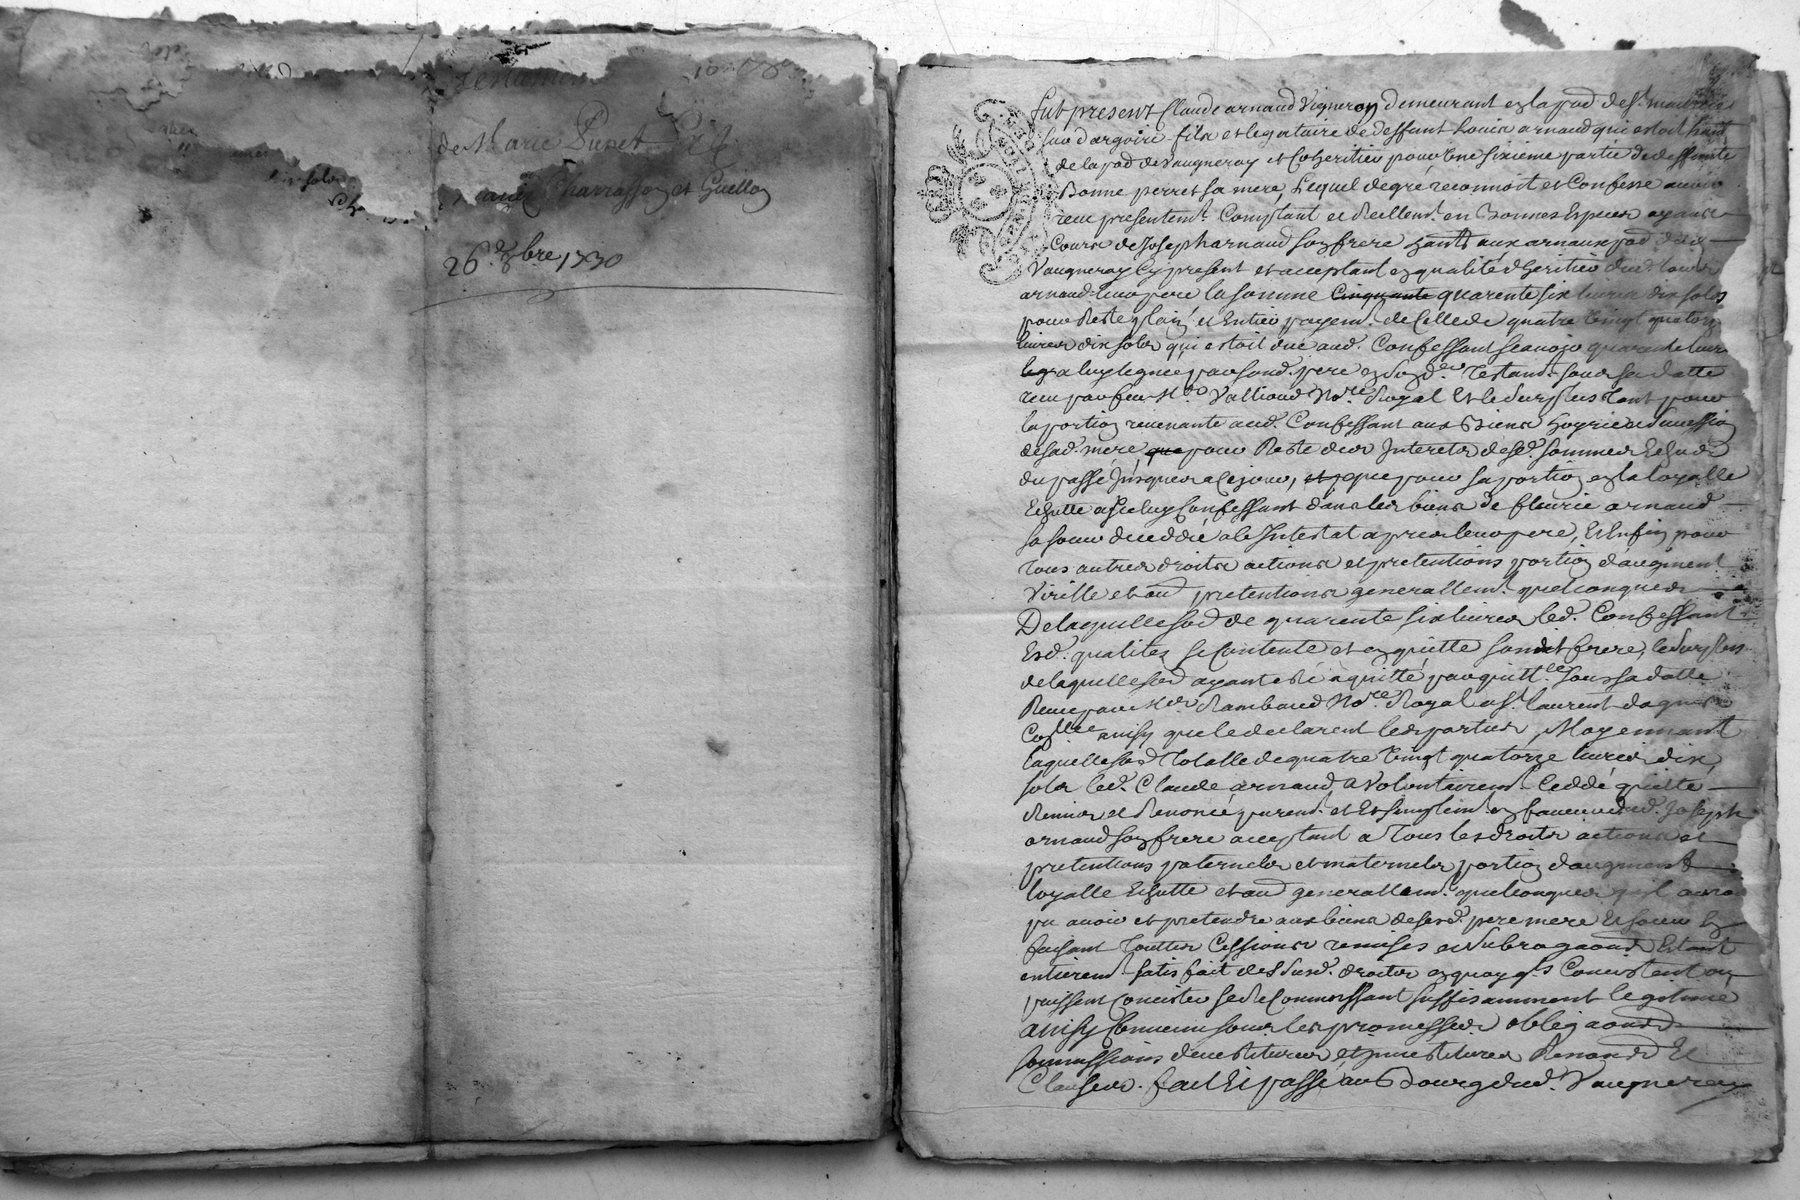 testam
de Marie Puset
Charrasson et Guillon
26e 8bre 1730
fut present Claude arnaud Vigneron demeurant en la pad de st. maurice
sur d'argoire fils et legataire de deffunt Louis arnaud, qui estoit hant
de la pad de Vaugneray et coheritier pour une sixieme partie de deffunte
Bonne perret sa mere, Lequel de gré reconnoit et Confesse avoir
receu presentemt. Comptant et Reellemt. en Bonnes Especes ayant
Cours de Joseph arnaud son frere hantt aux arnaux pad dud
Vaugneray Cy present et acceptant en qualité d'heritier dud. louis
arnaud leur pere la somme Cinquante quarente six livres dix sols
pour Reste plain et Entier payemt. de Celle de quatre Vingt quatorze
livres dix sols qui estoit due aud. Confessant scavoir quarante livres
leg a luy leguée par sond. pere en son dr. Testamt. sous sa datte
receu par feu Me Vallioud Nore. Royal et le surplus tant pour
la portion revenante aud. Confessant aux Biens hoyrie et succession
de sad. mere, que pour Reste des Interets desd. sommes Echues
du passé Jusques a Ce jour, et que pour sa portion en la loyalle
Echutte a Iceluy Confessant dans les biens de fleurie arnaud
sa soeur deceddée ab Intestat apres leur pere, Et Enfin pour
tous autres droits actions et pretentions portion d'augment
Virille et aud pretentions generallemt. quelconques
De laquelle sod de quarente six livres led. Confessant
Esd. qualites se Contente et en quitte son dit frere, le surplus
de laquelle sod ayant esté aquitté par quittce sous sa datte
Receue par Me. Rambaud Nore Royal a st. laurent dagny
ainsy que le declarent les parties, Moyennant
laquelle sod Totalle de quatre Vingt quatorze livres dix
sols led. Claude arnaud a Volontairemt. Ceddé quitte
Remis et Renoncé puremt. et Et simplemt. en faveur dud. Joseph
arnaud son frere acceptant a Tous les droits actions et
pretentions paternels et maternels portion d'augment
loyalle Echutte et aud generallemt. quelconques qu'il auroit
pu avoir et pretendre aux biens de sesd. pere mere Et soeur En
faisant Touttes Cessions remises et subrogaons Estant
entieremt. satisfait desd susd. droits en quoy qls Consistent ou
puissent Consister se Reconnoissant suffisamment legitimé
ainsy Convenu sous les promesses obligaons
soumissions devestitures et investitures Renonons Et
Clauses. fait Et passé au Bourg dud. Vaugneray